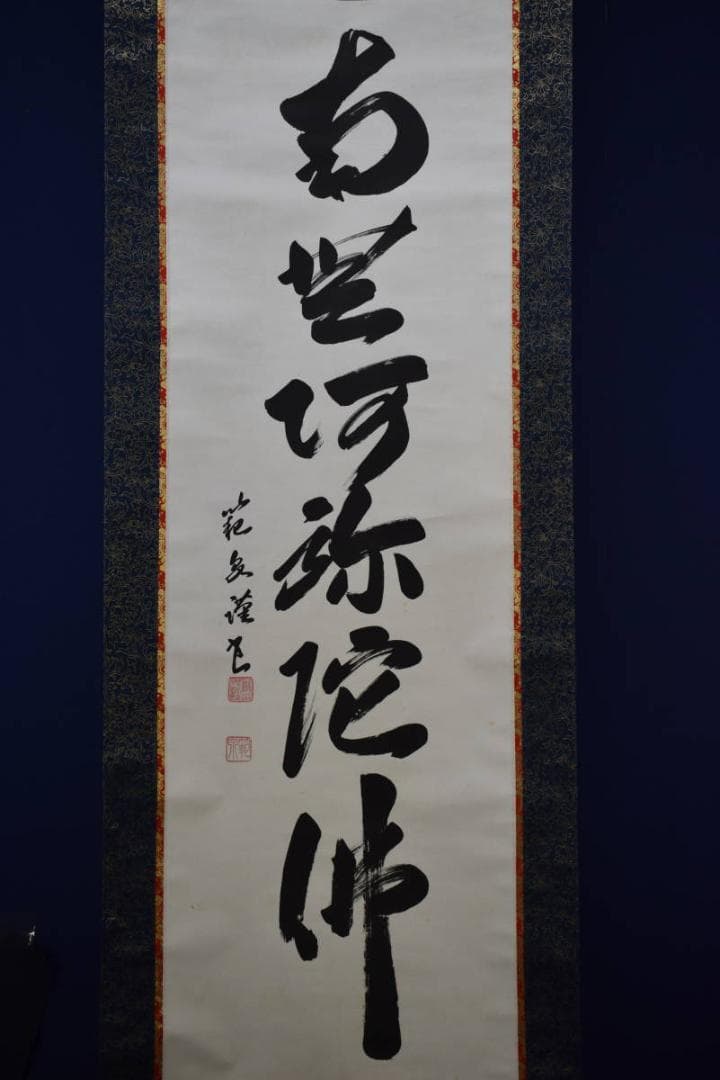 南無阿弥陀佛
範
謹書